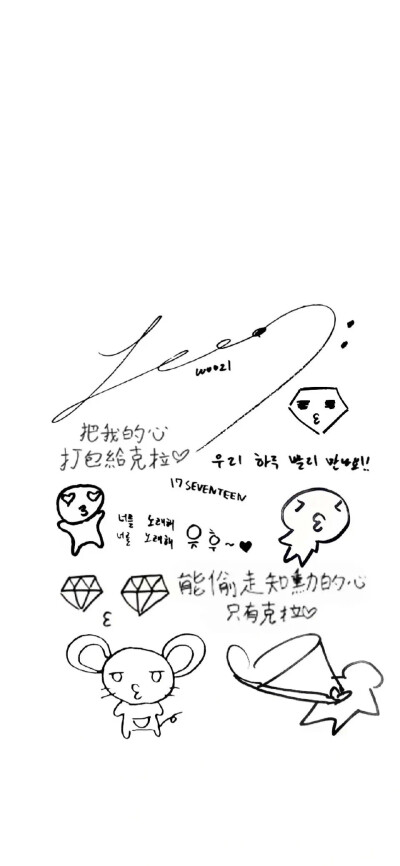 woozi
把我的心
打包給克拉♡
우리 하루 빨리 만나요!!
17 SEVENTEEN
너를 노래해
너를 노래해
웃후~♥
能偷走知勳的心
只有克拉♡